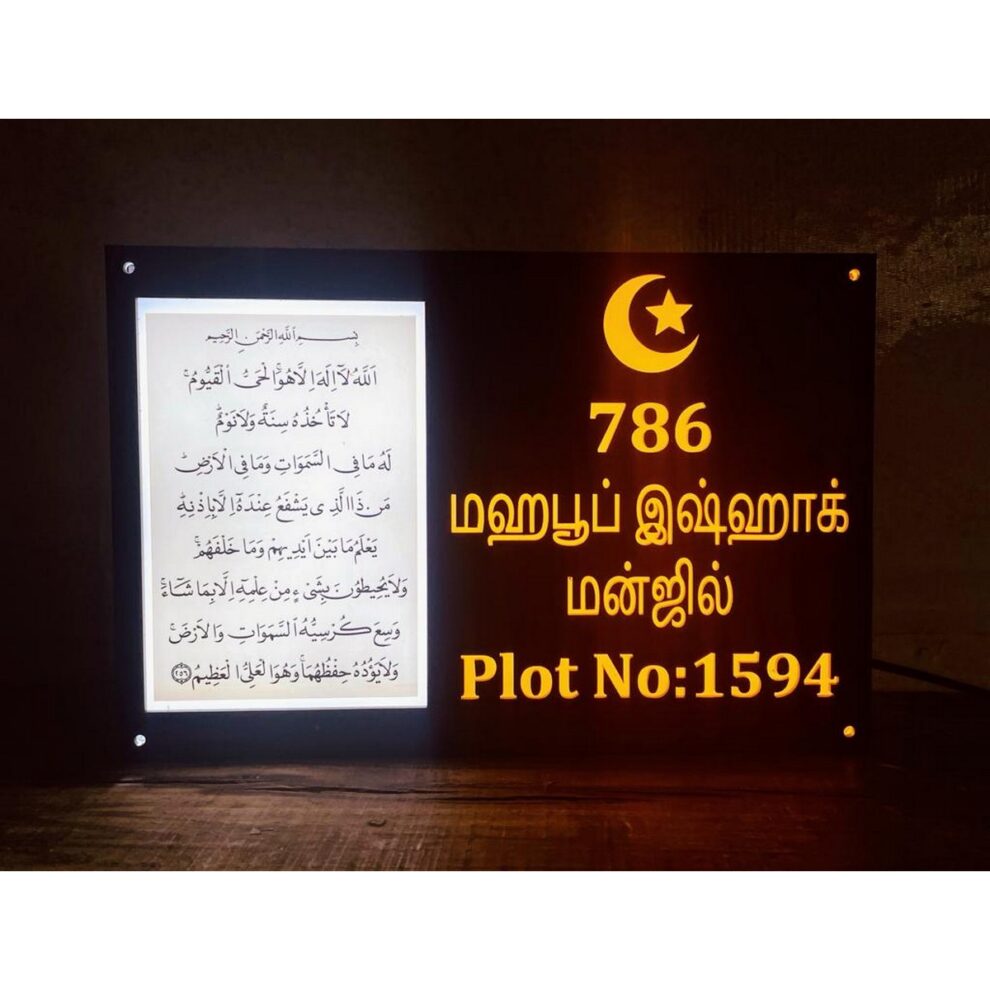 بِسْمِ اللهِ الرَّحْمٰنِ الرَّحِيمِ
اَللهُ لَآ اِلٰهَ اِلَّا هُوَ ۚ اَلْحَىُّ الْقَيُّومُ ۚ
لَا تَأْخُذُهُ سِنَةٌ وَلَا نَوْمٌ ۗ
لَهُ مَا فِى السَّمٰوَاتِ وَمَا فِى الْاَرْضِ ۗ
مَنْ ذَا الَّذِى يَشْفَعُ عِنْدَهُٓ اِلَّا بِاِذْنِهٖ
يَعْلَمُ مَا بَيْنَ اَيْدِيهِمْ وَمَا خَلْفَهُمْ ۚ
وَلَا يُحِيطُونَ بِشَىْءٍ مِنْ عِلْمِهٖٓ اِلَّا بِمَا شَآءَ ۚ
وَسِعَ كُرْسِيُّهُ السَّمٰوَاتِ وَالْاَرْضَ ۚ
وَلَا يَؤُدُهُ حِفْظُهُمَا ۚ وَهُوَ الْعَلِىُّ الْعَظِيمُ ﴿٢٥٦﴾
786
மஹபூப் இஷ்ஹாக்
மன்ஜில்
Plot No:1594